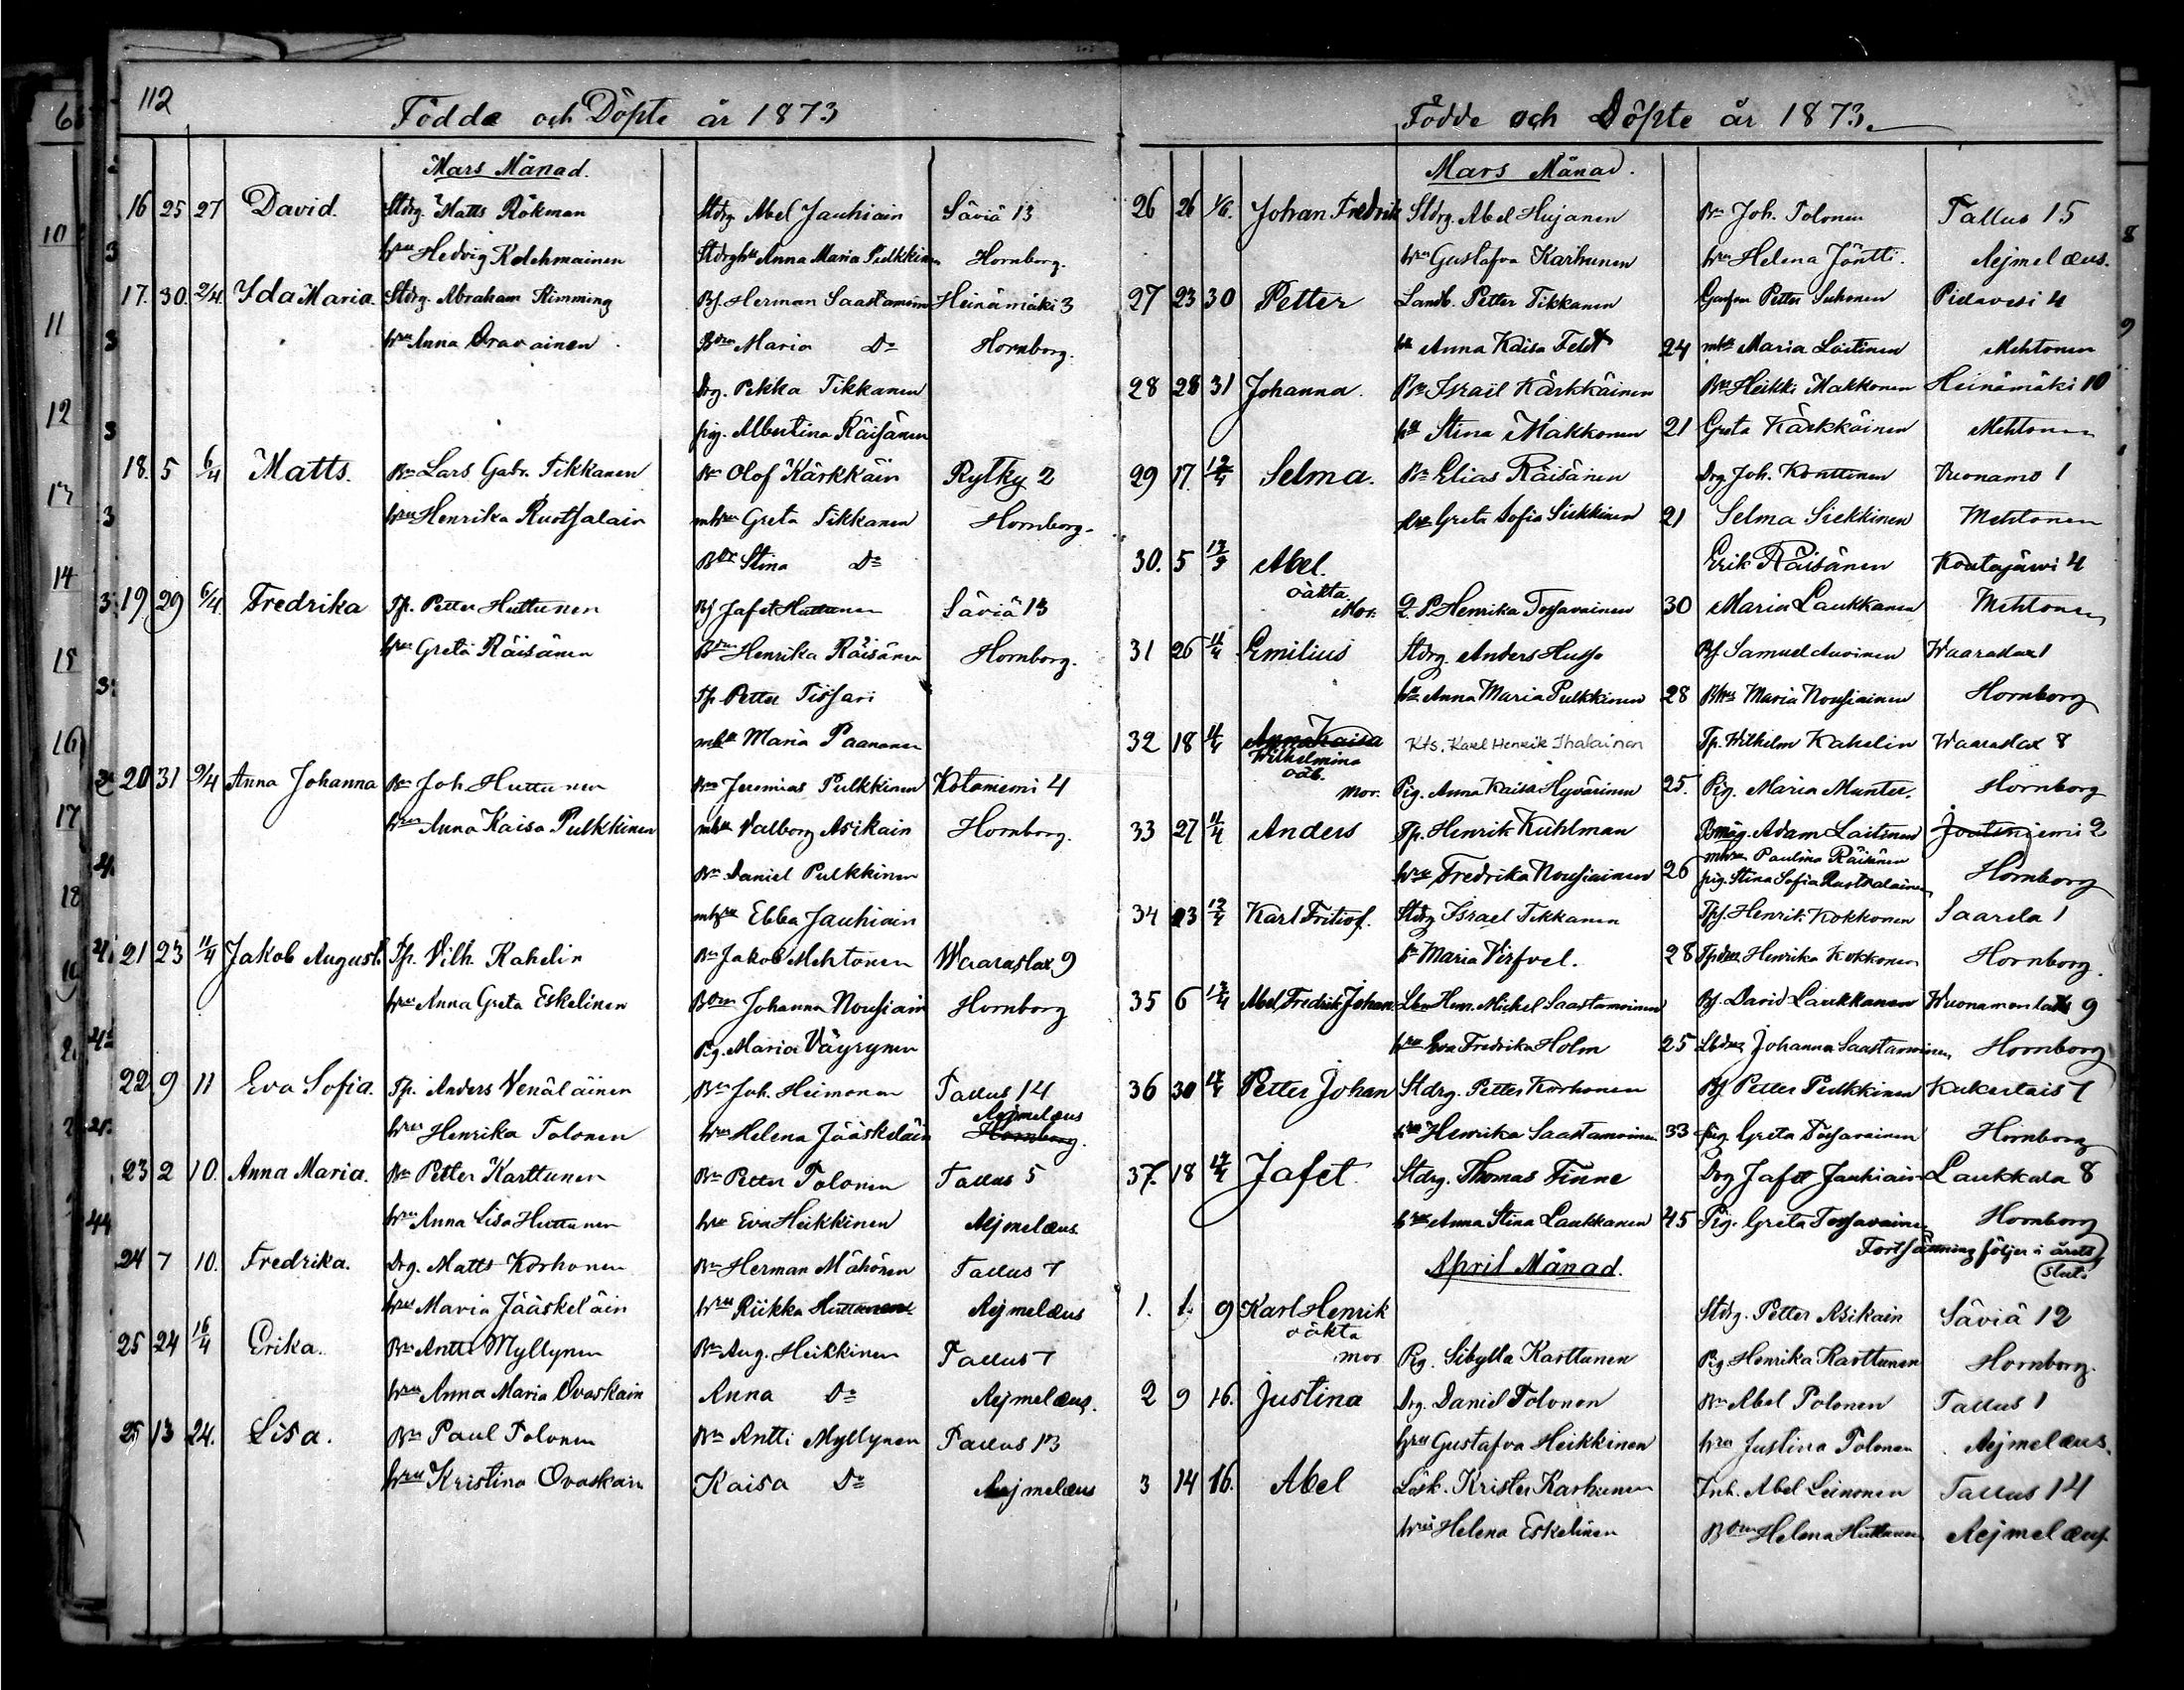 112
Födde och Döpte år 1873
Mars Månad.
16 25 27 David. Stdrg. Matts Rökman Stdrg Abel Jauhiain Säviä 13
hru Hedvig Kolehmainen Stdrghu Anna Maria Pulkkinen Hornborg.
17. 30. 2/4. Ida Maria. Stdrg. Abraham Flimming Bf. Herman Saastamoin Heinämäki 3
hru Anna Oravainen Bdr Maria Do Hornborg.
Drg. Pekka Tikkanen
pig. Albertina Räisänen
18. 5 6/4 Matts. Bn Lars Gabr. Tikkanen Bn Olof Kärkkäin Rytky 2
hru Henrika Ruotsalain mhru Greta Tikkanen Hornborg.
Bdr Stina Do
19. 29 6/4 Fredrika Tp. Petter Huttunen Bf Jafet Huttunen Säviä 13
hru Greta Räisänen Bdr Henrika Räisänen Hornborg.
Tp. Petter Tissari
mhu Maria Paananen
20 31 9/4 Anna Johanna Bn Joh Huttunen Bn Jeremias Pulkkinen Kotaniemi 4
hru Anna Kaisa Pulkkinen mhu Valborg Asikain Hornborg.
Bn Daniel Pulkkinen
mhru Ebba Jauhiain
21 23 11/4 Jakob August. Tp. Vilh. Kahelin Bn Jakob Mehtonen Waaraslax 9
hru Anna Greta Eskelinen Bdr Johanna Nousiain Hornborg
Pig. Maria Väyrynen
22 9 11 Eva Sofia. Tp. Anders Venäläinen Bn Joh. Heimonen Tallus 14
Aejmelæus
hru Henrika Tolonen hru Helena Jääskeläin Hornborg.
23 2 10. Anna Maria. Bn Petter Karttunen Bn Petter Tolonen Tallus 5
hru Anna Lisa Huttunen hru Eva Heikkinen Aejmelæus.
24 7 10. Fredrika. Drg. Matts Korhonen Bn Herman Mähönen Tallus 7
hru Maria Jääskeläin hru Riikka Huttunen Aejmelæus
25 24 16/4 Erika. Bn Antti Myllynen Bn Aug. Heikkinen Tallus 7
hru Anna Maria Ovaskain Anna Do Aejmelæus.
25 13 24. Lisa. Bn Paul Tolonen Bn Antti Myllynen Tallus 13
hru Kristina Ovaskain Kaisa Do Aejmelæus
Födde och Döpte år 1873.
Mars Månad.
26 26 1/6. Johan Fredrik Stdrg. Abel Hujanen Bn Joh. Tolonen Tallus 15
hru Gustafva Karhunen hru Helena Jöntti. Aejmelæus.
27 23 30 Petter Landb. Petter Tikkanen Petter Suhonen Pielavesi 4
hu Anna Kaisa Feldt 24 mhu Maria Laitinen Mehtonen
28 28 31 Johanna. Bn Israël Kärkkäinen Bn Heikki Makkonen Heinämäki 10
hu Stina Makkonen 21 Greta Kärkkäinen Mehtonen
29 17. 12/4 Selma. Bn Elias Räisänen Drg Joh. Konttinen Vuonamo 1
hru Greta Sofia Siekkinen 21 Selma Siekkinen Mehtonen
30. 5 Abel. Erik Räisänen Koutajärvi 4
oäkta
Mor. Henrika Tossavainen 30 Maria Laukkanen Mehtonen
31 26 11/4 Emilius Stdrg. Anders Husso Bf. Samuel Auvinen Waaraslax 1
hu Anna Maria Pulkkinen 28 Bhru Maria Nousiainen Hornborg
32 18 11/4 Anna Kaisa Kts. Karl Henrik Ihalainen Tp. Wilhelm Kahelin Waaraslax 8
Wilhelmina
oäk.
mor. Pig. Anna Kaisa Hyvärinen 25. Pig. Maria Munter. Hornborg
33 27 11/4 Anders Tp. Henrik Kuhlman Bmåg. Adam Laitinen Joutsniemi 2
mhru Paulina Räisänen
hru Fredrika Nousiainen 26 pig. Stina Sofia Ruotsalainen Hornborg
34 23 12/4 Karl Fritiof. Stdrg Israel Tikkanen Tpf. Henrik Kokkonen Saarela 1
hu Maria Virfvel. 28 Tpdr Henrika Kokkonen Hornborg.
35 6 12/4 Abel Fredrik Johan Lbn Hen. Michel Saastamoinen Bf. David Laukkanen Wuonamonlaks 9
hru Eva Fredrika Holm 25 Lbdr Johanna Saastamoinen Hornborg
36 30 Petter Johan Stdrg. Petter Korhonen Bf Petter Pulkkinen Kukertais 7
hru Henrika Saastamoinen 33 pig. Greta Tossavainen Hornborg
37. 18 Jafet Stdrg. Thomas Finne Drg Jafet Jauhiain Laukkala 8
hru Anna Stina Laukkanen 45 Pig. Greta Tossavainen Hornborg
Fortsättning följer i årets slut.
April Månad.
1. 1. 9 Karl Henrik Stdrg. Petter Asikain Säviä 12
oäkta
mor Pig. Sibylla Karttunen Pig Henrika Karttunen Hornborg.
2 9 16. Justina Drg. Daniel Tolonen Bn Abel Tolonen Tallus 1
hru Gustafva Heikkinen hru Justina Tolonen Aejmelæus.
3 14 16. Abel Lösk. Krister Karhunen Inh. Abel Leinonen Tallus 14
hru Helena Eskelinen Bdr Helena Huttunen Aejmelæus.